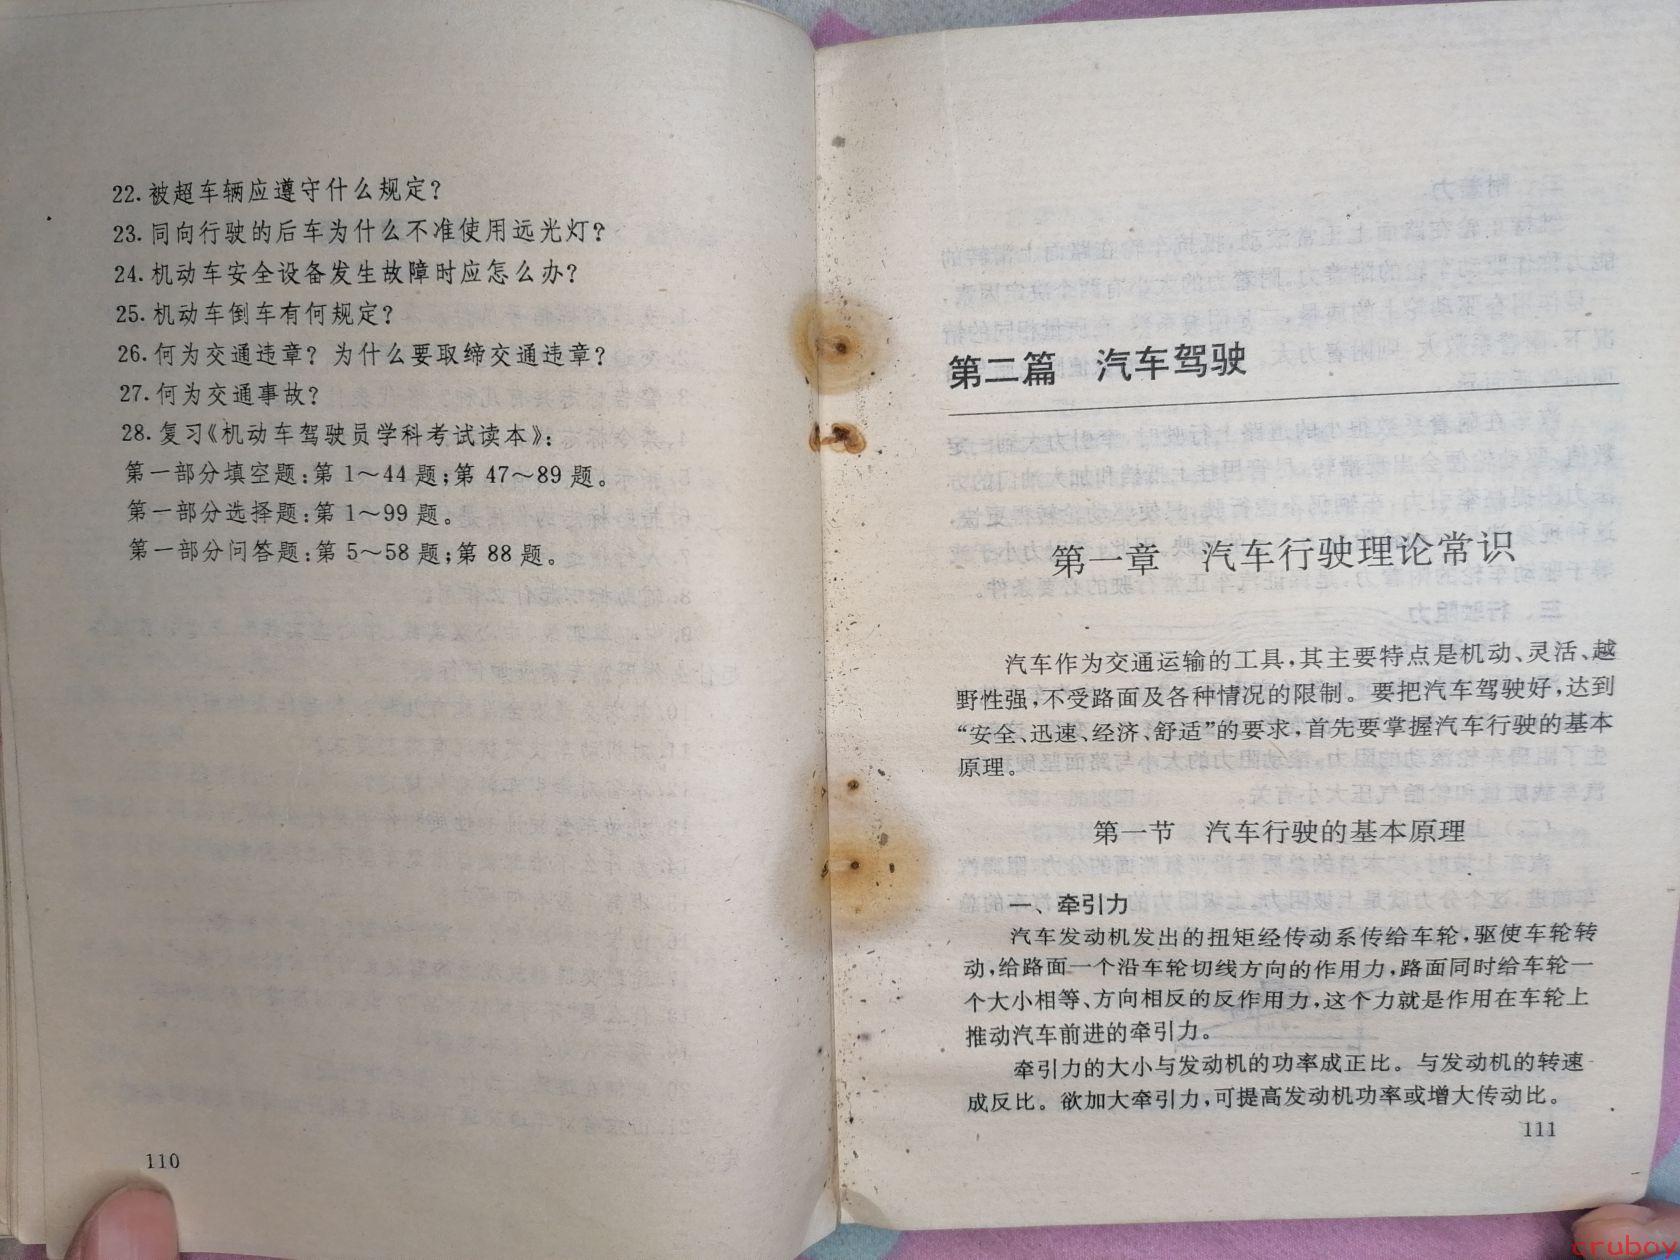 22.被超车辆应遵守什么规定?
23.同向行驶的后车为什么不准使用远光灯?
24.机动车安全设备发生故障时应怎么办?
25.机动车倒车有何规定?
26.何为交通违章? 为什么要取缔交通违章?
27.何为交通事故?
28.复习《机动车驾驶员学科考试读本》:
第一部分填空题:第 1～44 题;第 47～89 题。
第一部分选择题:第 1～99 题。
第一部分问答题:第 5～58 题;第 88 题。
110
第二篇 汽车驾驶
第一章 汽车行驶理论常识
汽车作为交通运输的工具,其主要特点是机动、灵活、越
野性强,不受路面及各种情况的限制。要把汽车驾驶好,达到
“安全、迅速、经济、舒适”的要求,首先要掌握汽车行驶的基本
原理。
第一节 汽车行驶的基本原理
一、牵引力
汽车发动机发出的扭矩经传动系传给车轮,驱使车轮转
动,给路面一个沿车轮切线方向的作用力,路面同时给车轮一
个大小相等、方向相反的反作用力,这个力就是作用在车轮上
推动汽车前进的牵引力。
牵引力的大小与发动机的功率成正比。与发动机的转速
成反比。欲加大牵引力,可提高发动机功率或增大传动比。
111
cruboy